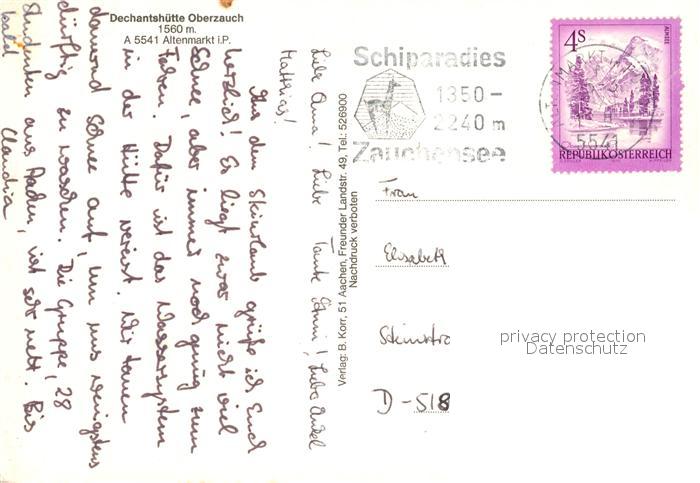 Dechantshütte Oberzauch
1560 m.
A 5541 Altenmarkt i.P.
Liebe Oma! Liebe Tante Shmi! Lieber Onkel
Matthias!
Aus dem Skiurlaub grüße ich Euch
herzlich! Es liegt zwar nicht viel
Schnee, aber immer noch genug zum
Fahren. Dafür ist das Wassersystem
in der Hütte vereist. Wir tauen
dauernd Schnee auf, um uns wenigstens
dürftig zu waschen. Die Gruppe, 28
Studenten aus Aachen, ist sehr nett. Bis
bald
Claudia
Verlag: B. Korr, 51 Aachen, Freunder Landstr. 49, Tel.: 526900
Nachdruck verboten
Schiparadies
1350 –
2240 m
Zauchensee
4S
ALMSEE
5541
REPUBLIK ÖSTERREICH
Frau
Elisabeth
Steinstra
D - 518
privacy protection
Datenschutz